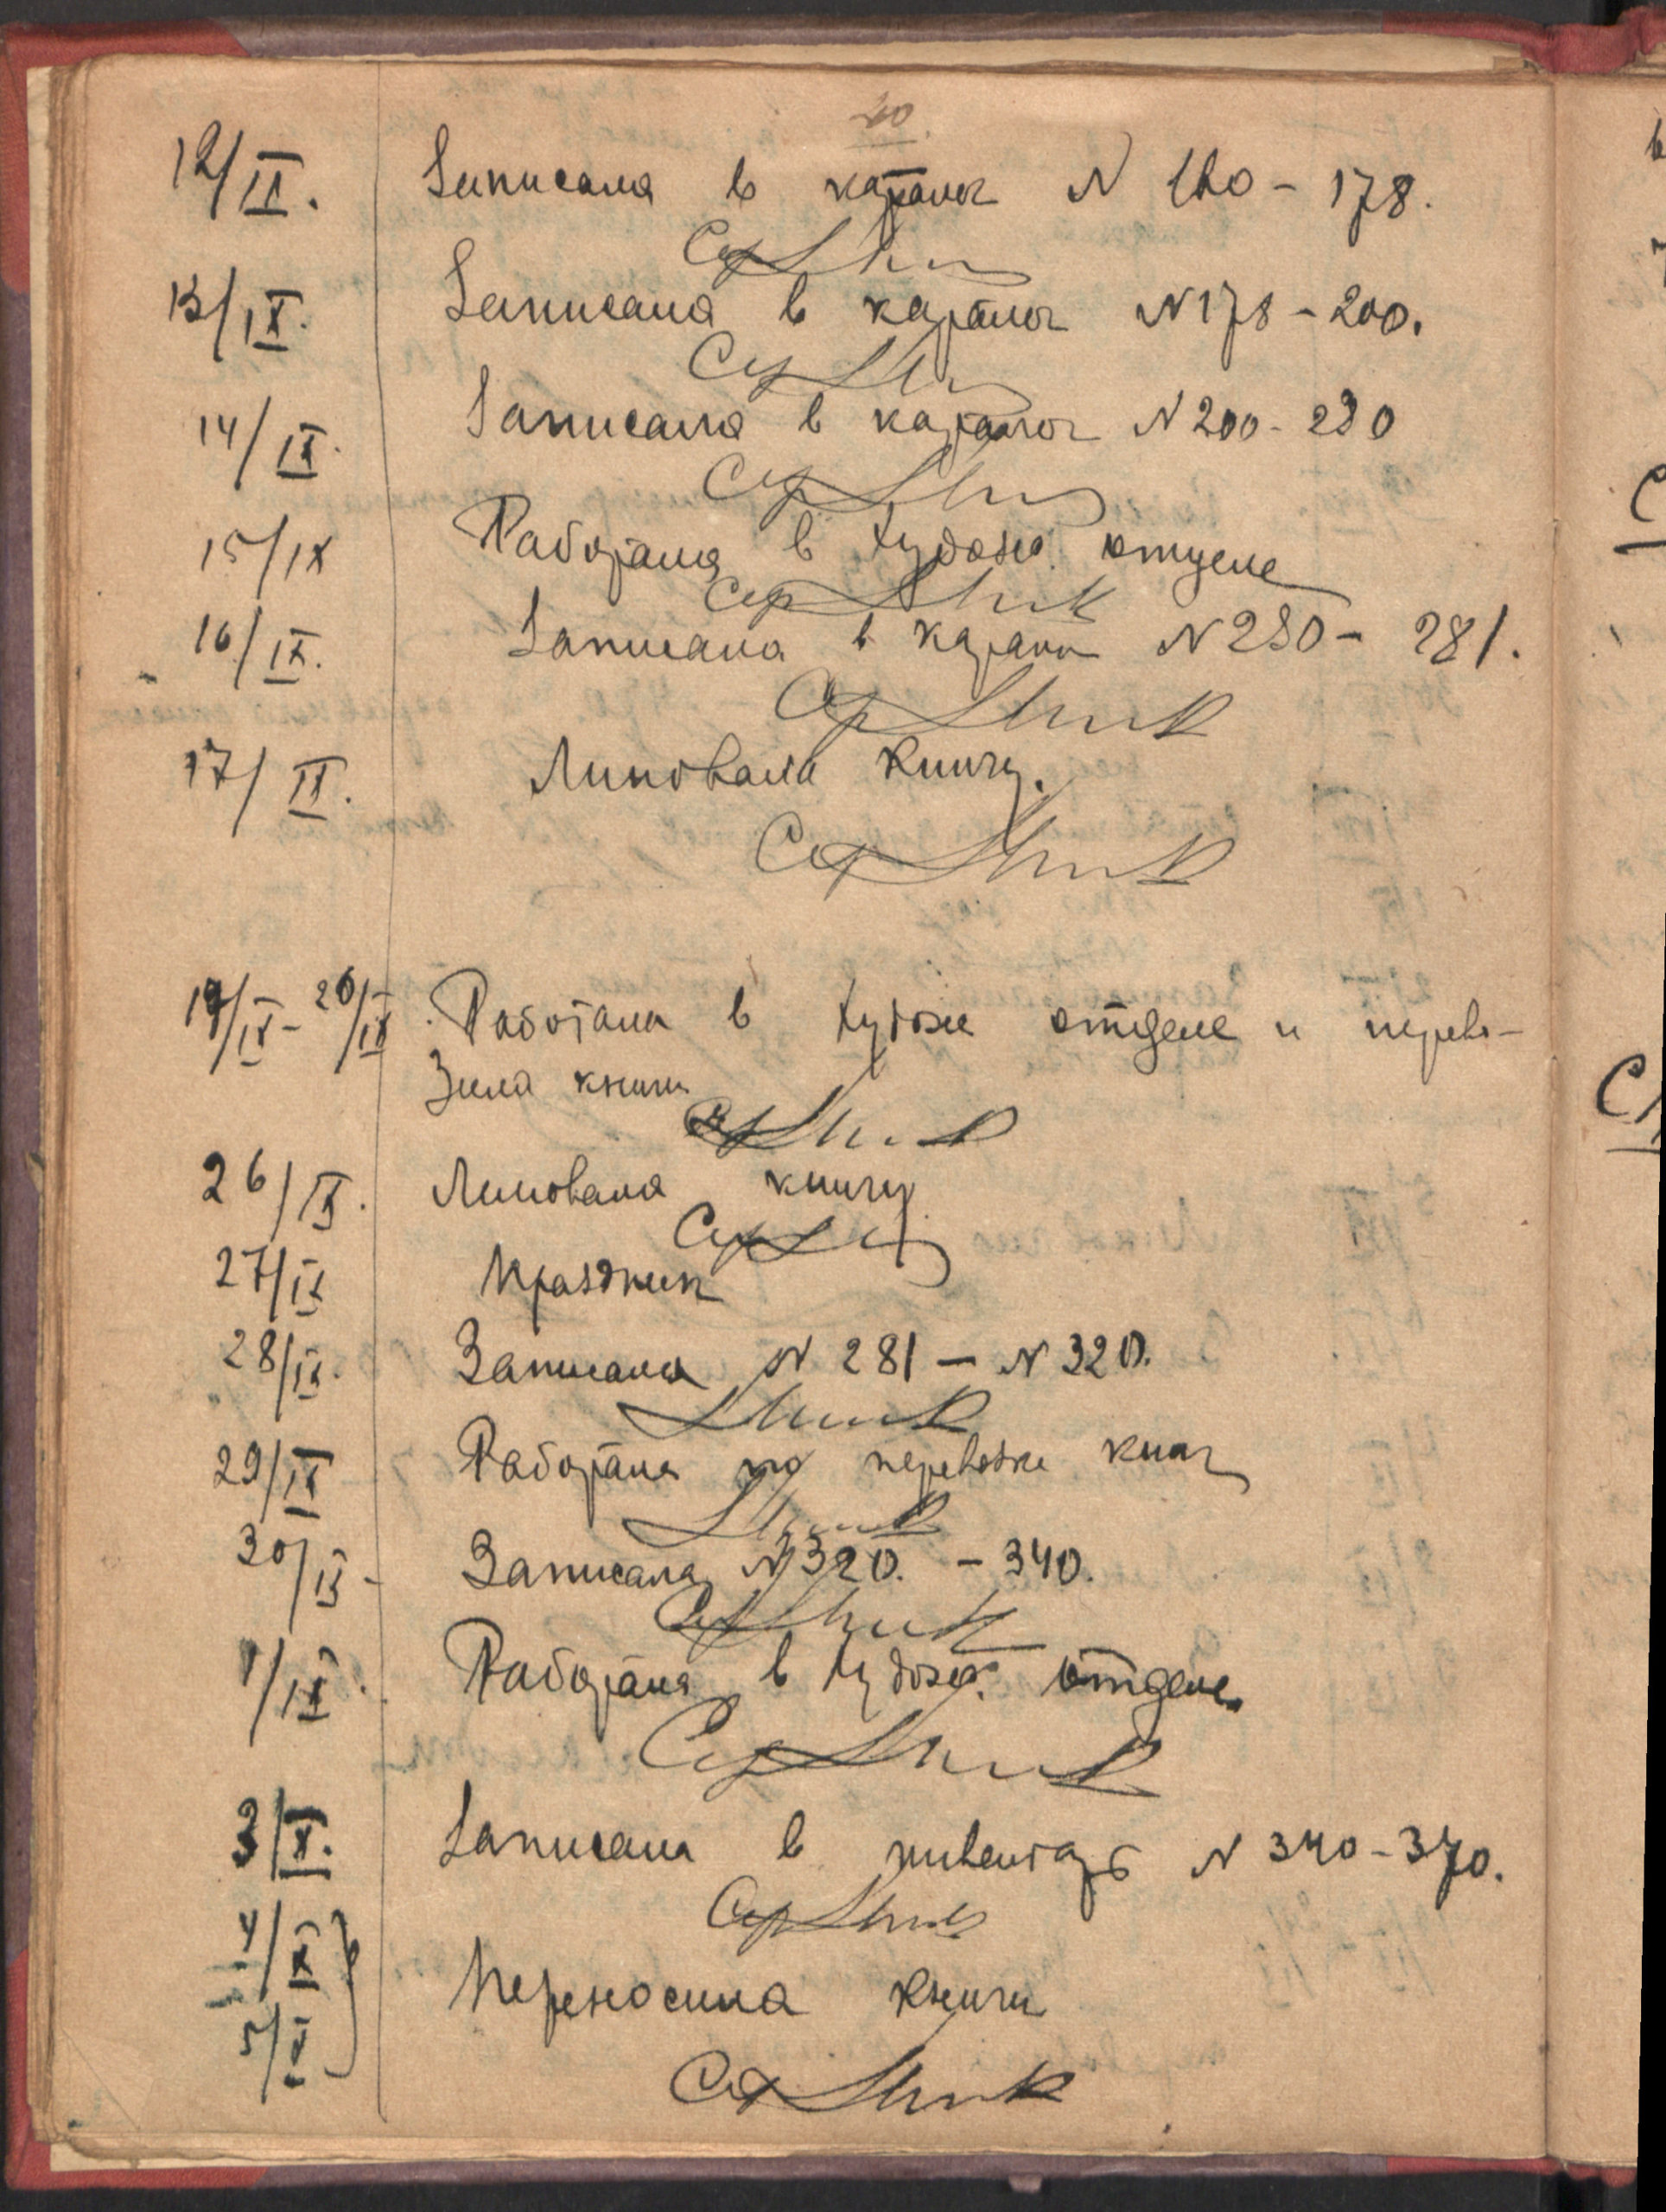 20
12/IX. Записала в каталог N 160 - 178.
13/IX. Записала в каталог N 178 - 200.
14/IX. Записала в каталог N 200 - 230
15/IX Работала в худож. отделе
16/IX. Записала в каталог N 230 - 281.
17/IX. Линовала книгу.
19/IX - 26/IX Работала в худож отделе и перево-
зила книги
26/IX. Линовала книгу
27/IX Праздник
28/IX. Записала N 281 — N 320.
29/IX Работала по перевозке книг
30/IX - Записала N 320. - 340.
1/IX. Работала в худож. отделе
3/X. Записала в инвентарь N 340 - 370.
4/X
5/X Переносила книги